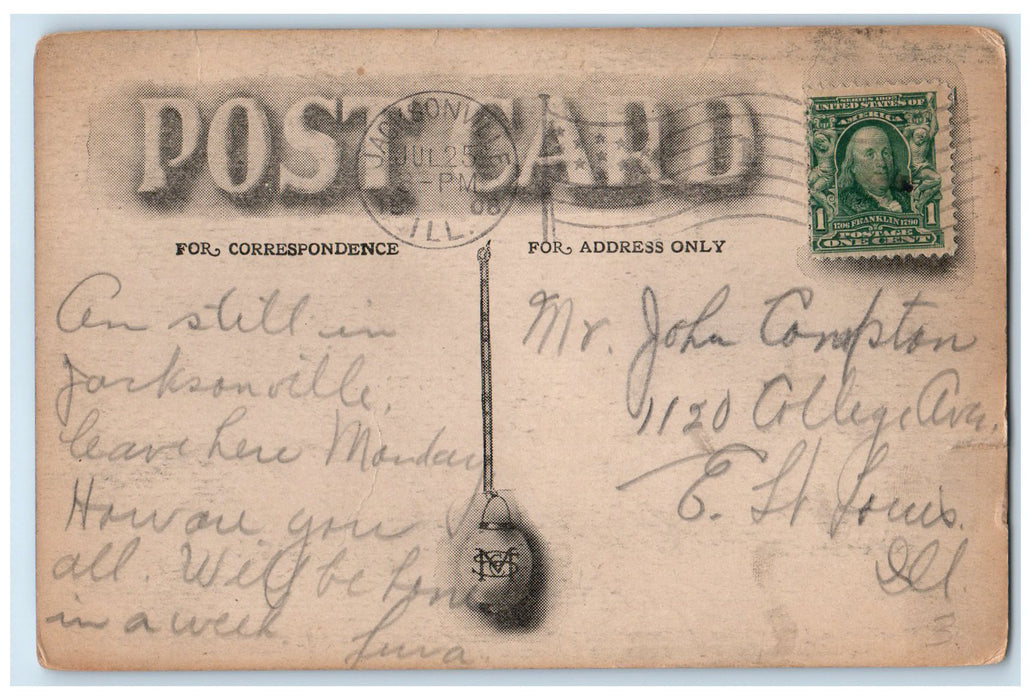 POST CARD
JACKSONVILLE
JUL 25
-PM
08
ILL.
SERIES 1902
UNITED STATES OF
AMERICA
1 1706 FRANKLIN 1790 1
POSTAGE
ONE CENT
FOR CORRESPONDENCE
FOR ADDRESS ONLY
Am still in
Jacksonville,
leave here Monday
How are you
all. Will be home
in a week.
Mr. John Compton
1120 College Ave.
E. St Louis.
Ill